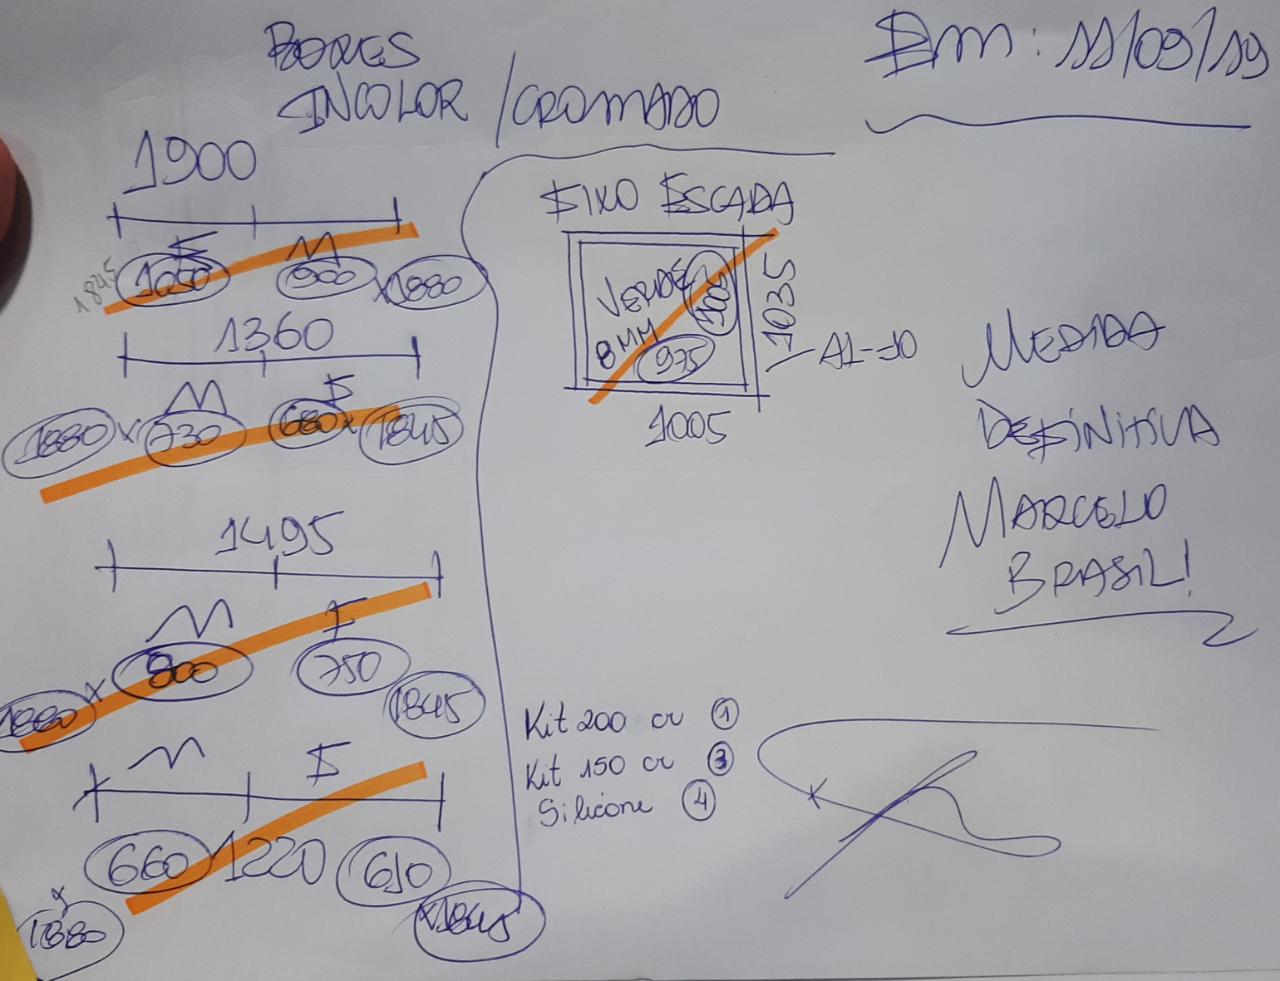 BOXES
INCOLOR / CROMADO
Em: 11/09/19
1900
F M
1845 1050 900 x1880
1360
M F
1880 x 730 680 x 1845
1495
M F
1880 x 800 750 1845
M F
660 1220 610
x 1880 x1845
FIXO ESCADA
VERDE
8MM
1005
975
1035
AL-10
1005
MEDIDA
DEFINITIVA
MARCELO
BRASIL!
Kit 200 cr 1
Kit 150 cr 3
Silicone 4
x